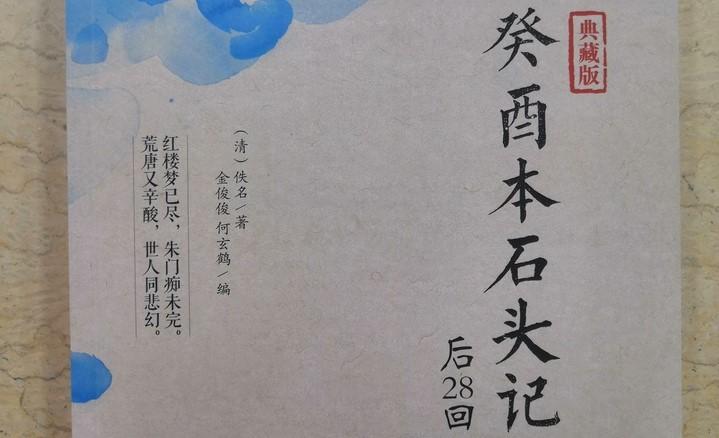 典藏版
癸酉本石头记
后28回
（清）佚名/著
金俊俊 何玄鹤/编
红楼梦已尽，朱门痴未完。
荒唐又辛酸，世人同悲幻。